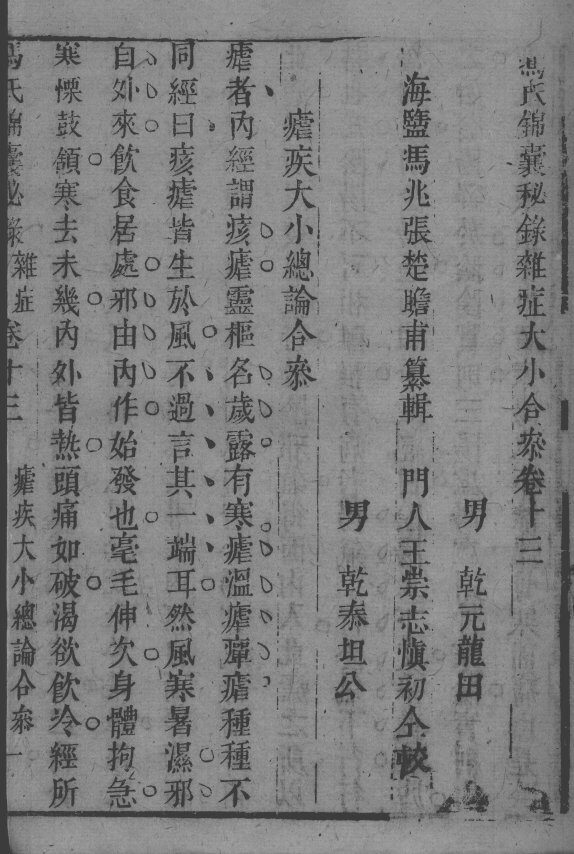 馮氏錦囊秘錄雜症大小合叅卷十三
男　乾元龍田
海鹽馮兆張楚瞻甫纂輯　門人王崇志慎初仝較
男　乾泰坦公
瘧疾大小總論合叅
瘧者內經謂痎瘧靈樞名歲露有寒瘧溫瘧癉瘧種種不
同經曰痎瘧皆生於風不過言其一端耳然風寒暑濕邪
自外來飲食居處邪由內作始發也毫毛伸欠身體拘急
寒慄鼓頷寒去未幾內外皆熱頭痛如破渴欲飲冷經所
馮氏錦囊秘錄　雜症　卷十三　瘧疾大小總論合叅　一